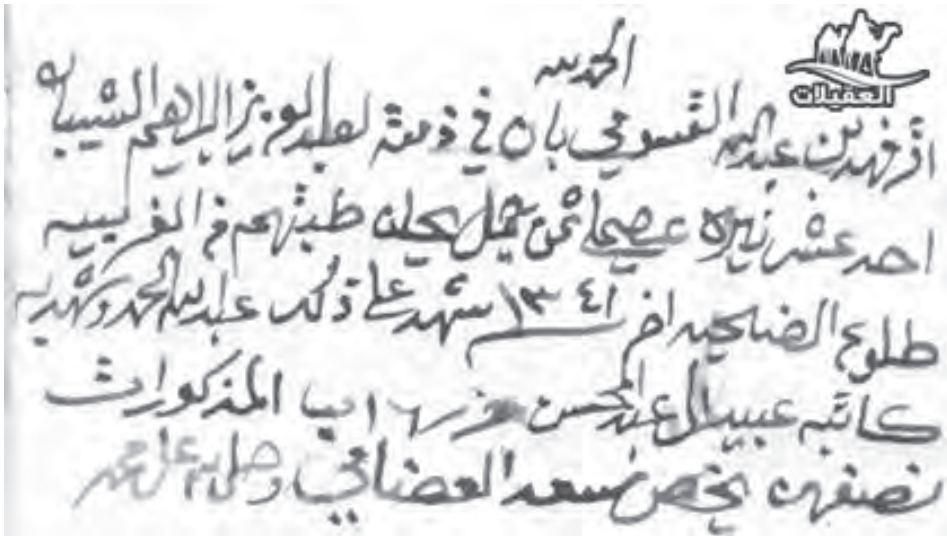 الحمد لله
العقيلات
اقر فهد بن عبدالله القسومي بان في ذمته لعبدالعزيز البراهيم الشيبان
احد عشر نيره عصملي ثمن جمل حلن طبتهم في الغريبيه
طلوع الضاحيه اخر ١٣٤١ شهد على ذلك عبدالله الحمد وشهد به
كاتبه عبيد ال عبدالمحسن المذكورات
نصفهن يخص سعد العضاض وصل على محمد